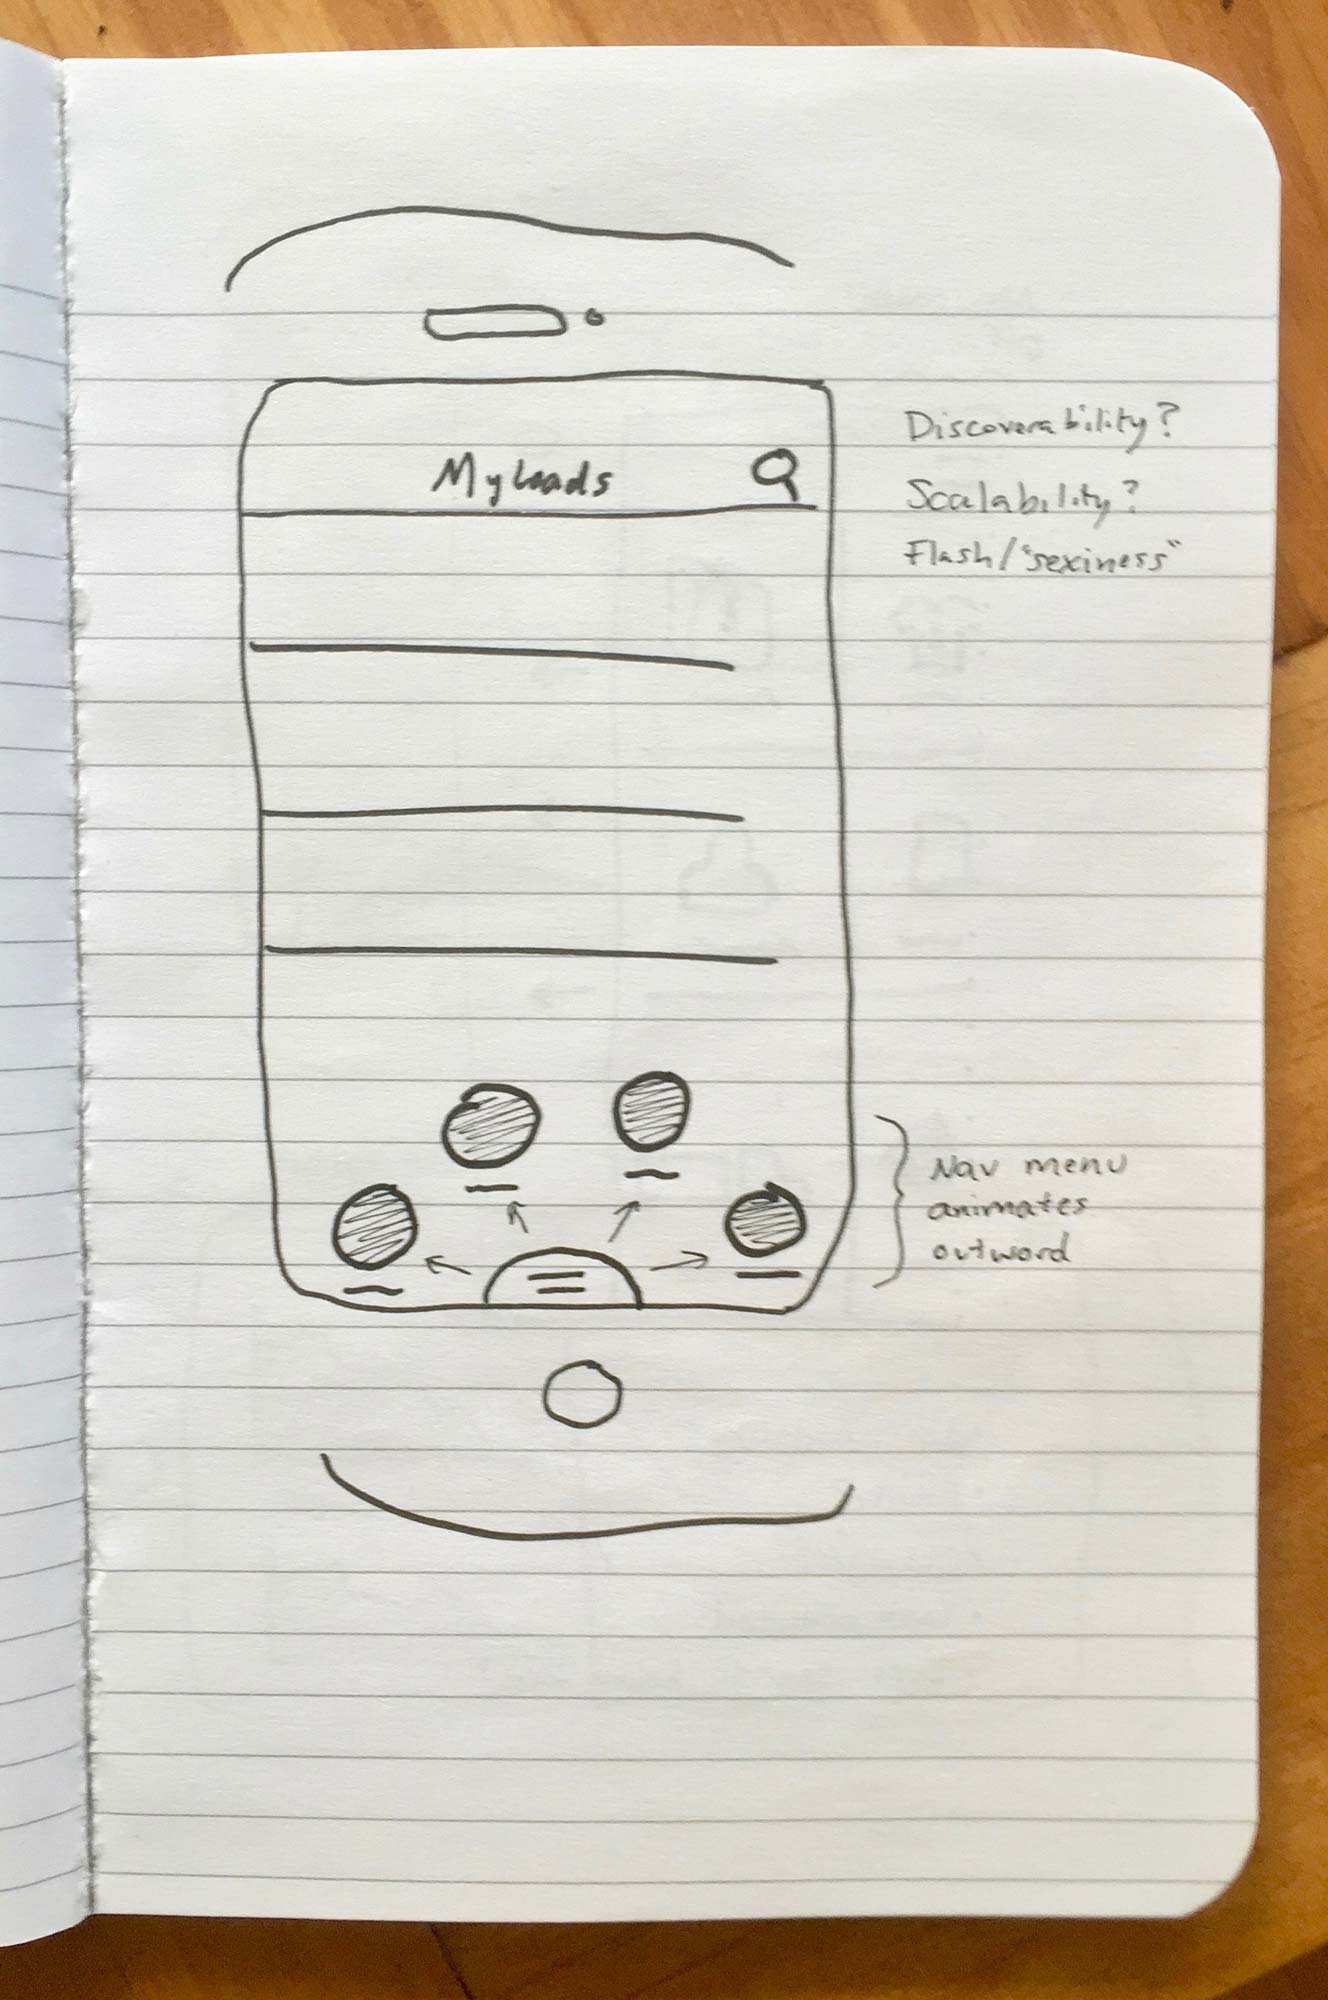 My Loads
Discoverability?
Scalability?
Flash/"sexiness"
Nav menu
animates
outward